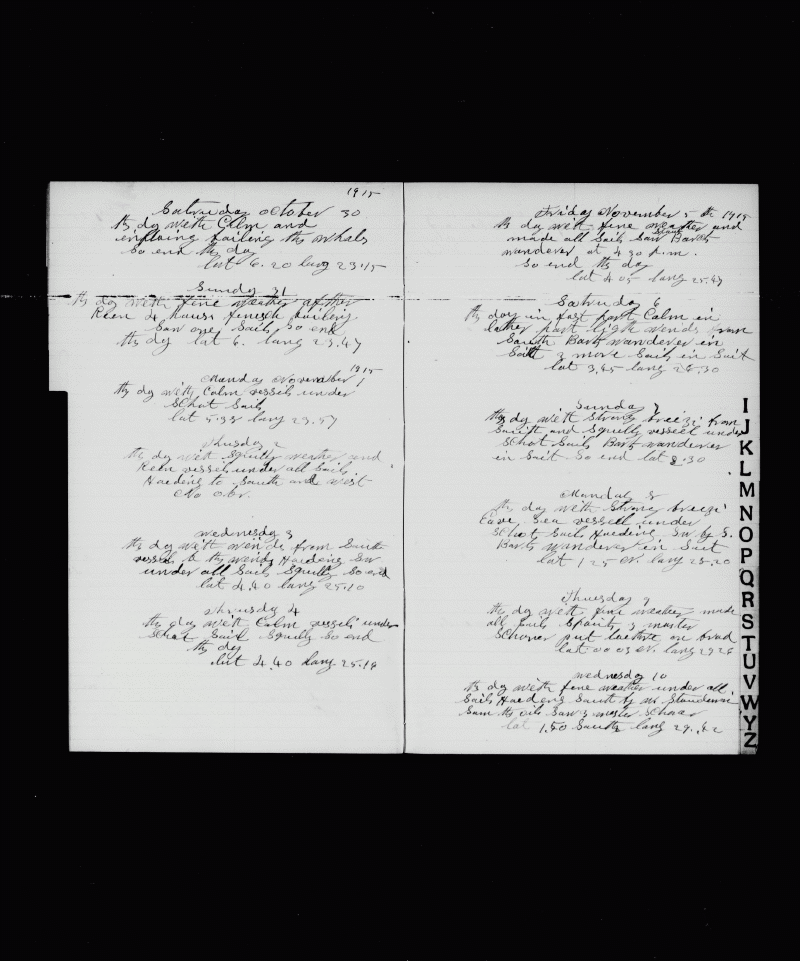 1915
Saturday october 30
ths dy with Calm and
boiling ths whals
So end ths day
lat 6.20 long 23.15
Sunday 31
ths dy with fine weather after
Keen 4 hours finish boiling
Saw one Sail So end
ths dy lat 6. long 23.47
1915
Monday November 1
ths dy with Calm vessels under
Schot Sails
lat 5.35 long 23.57
thusday 2
ths dy with Squally weather and
Keen vessel under all Sails
Haeding to South and West
No obr.
wednesdy 3
ths dy with wends from South
vessels to ths wends Haeding Sw
under all Sails Squally So end
lat 4.40 long 25.10
thursdy 4
ths day with Calm vessels under
Schot Sail Squally So end
ths dy
lat 4.40 long 25.18
Friday November 5 th 1915
ths dy with fine weather and
made all Sails Saw Bark
wanderer at 4 30 p.m.
So end ths dy
lat 4 05 long 25.47
Saturday 6
ths day in fast part Calm in
lather part ligth wends from
South Bark wanderer in
Sait 3 more Sails in Sait
lat 3,45 long 26.30
Sunday 7
ths dy with Strong breize from
South and Squally vessel under
Schot Sails Bark wanderer
in Sait So end lat 2.30
Monday 8
ths dy with Strong breize
Sea vessel under
Schot Sails Haeding Sw by S.
Bark wanderer in Sait
lat 1 25 N. long 28.20
Thuesday 9
ths dy with fine weather made
all Sails 3 master
Schoner put on brad
lat 00 03 N. long 29 26
wednesdy 10
ths dy with fine weather under all
Sails Haeding South by w.
Som ths oils Saw 3 master Schoar
lat 1,50 South long 29.42
I
J
K
L
M
N
O
P
Q
R
S
T
U
V
W
Y
Z